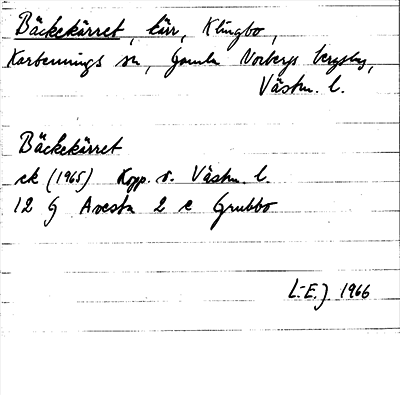 Bäckekärret, kärr, Klingbo,
Karbennings sn, Gamla Norbergs bergslag,
Västm. l.
Bäckekärret
ek (1965) Kopp. o. Västm. l.
12 G Avesta 2 e Grubbo
L-E.J. 1966